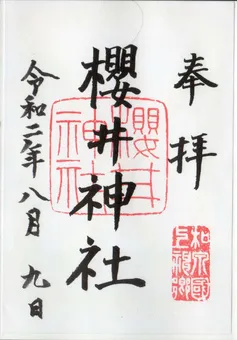 奉拝
櫻井神社
櫻井
神社
令和二年八月九日